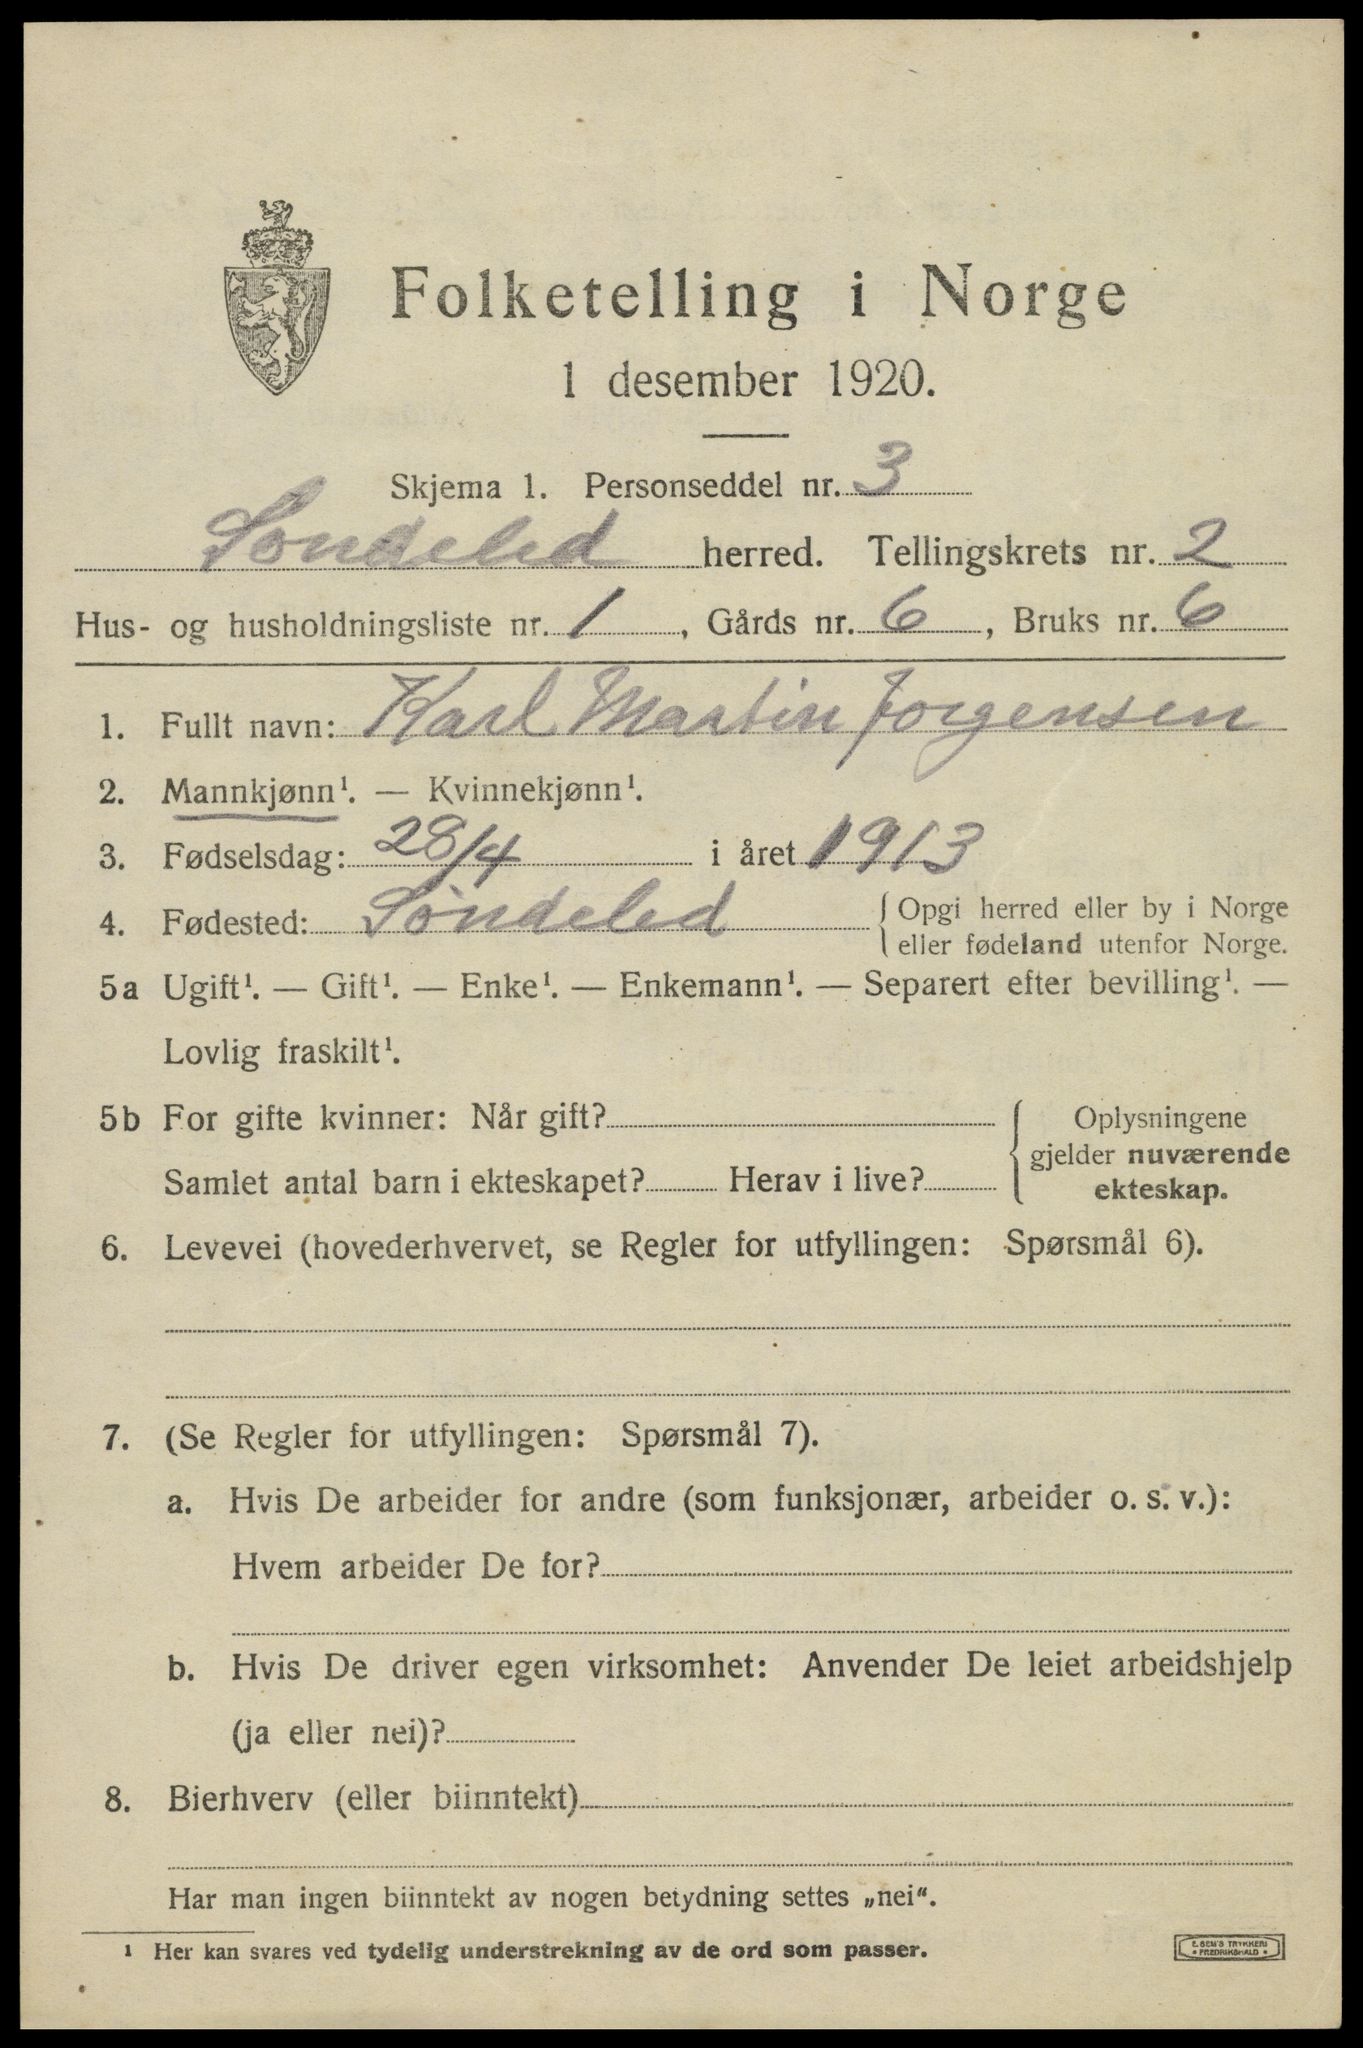 Folketelling i Norge
1 desember 1920.
Skjema 1. Personseddel nr. 3
Søndeled herred. Tellingskrets nr. 2
Hus- og husholdningsliste nr. 1, Gårds nr. 6, Bruks nr. 6
1. Fullt navn: Karl Martin Jørgensen
2. Mannkjønn¹. — Kvinnekjønn¹.
3. Fødselsdag: 28/4 i året 1913
4. Fødested: Søndeled { Opgi herred eller by i Norge
eller fødeland utenfor Norge.
5a Ugift¹. — Gift¹. — Enke¹. — Enkemann¹. — Separert efter bevilling¹. —
Lovlig fraskilt¹.
5b For gifte kvinner: Når gift?
Samlet antal barn i ekteskapet? Herav i live?
Oplysningene
gjelder nuværende
ekteskap.
6. Levevei (hovederhvervet, se Regler for utfyllingen: Spørsmål 6).
7. (Se Regler for utfyllingen: Spørsmål 7).
a. Hvis De arbeider for andre (som funksjonær, arbeider o. s. v.):
Hvem arbeider De for?
b. Hvis De driver egen virksomhet: Anvender De leiet arbeidshjelp
(ja eller nei)?
8. Bierhverv (eller biinntekt)
Har man ingen biinntekt av nogen betydning settes „nei“.
¹ Her kan svares ved tydelig understrekning av de ord som passer.
E. SEM'S TRYKKERI
• FREDRIKSHALD •